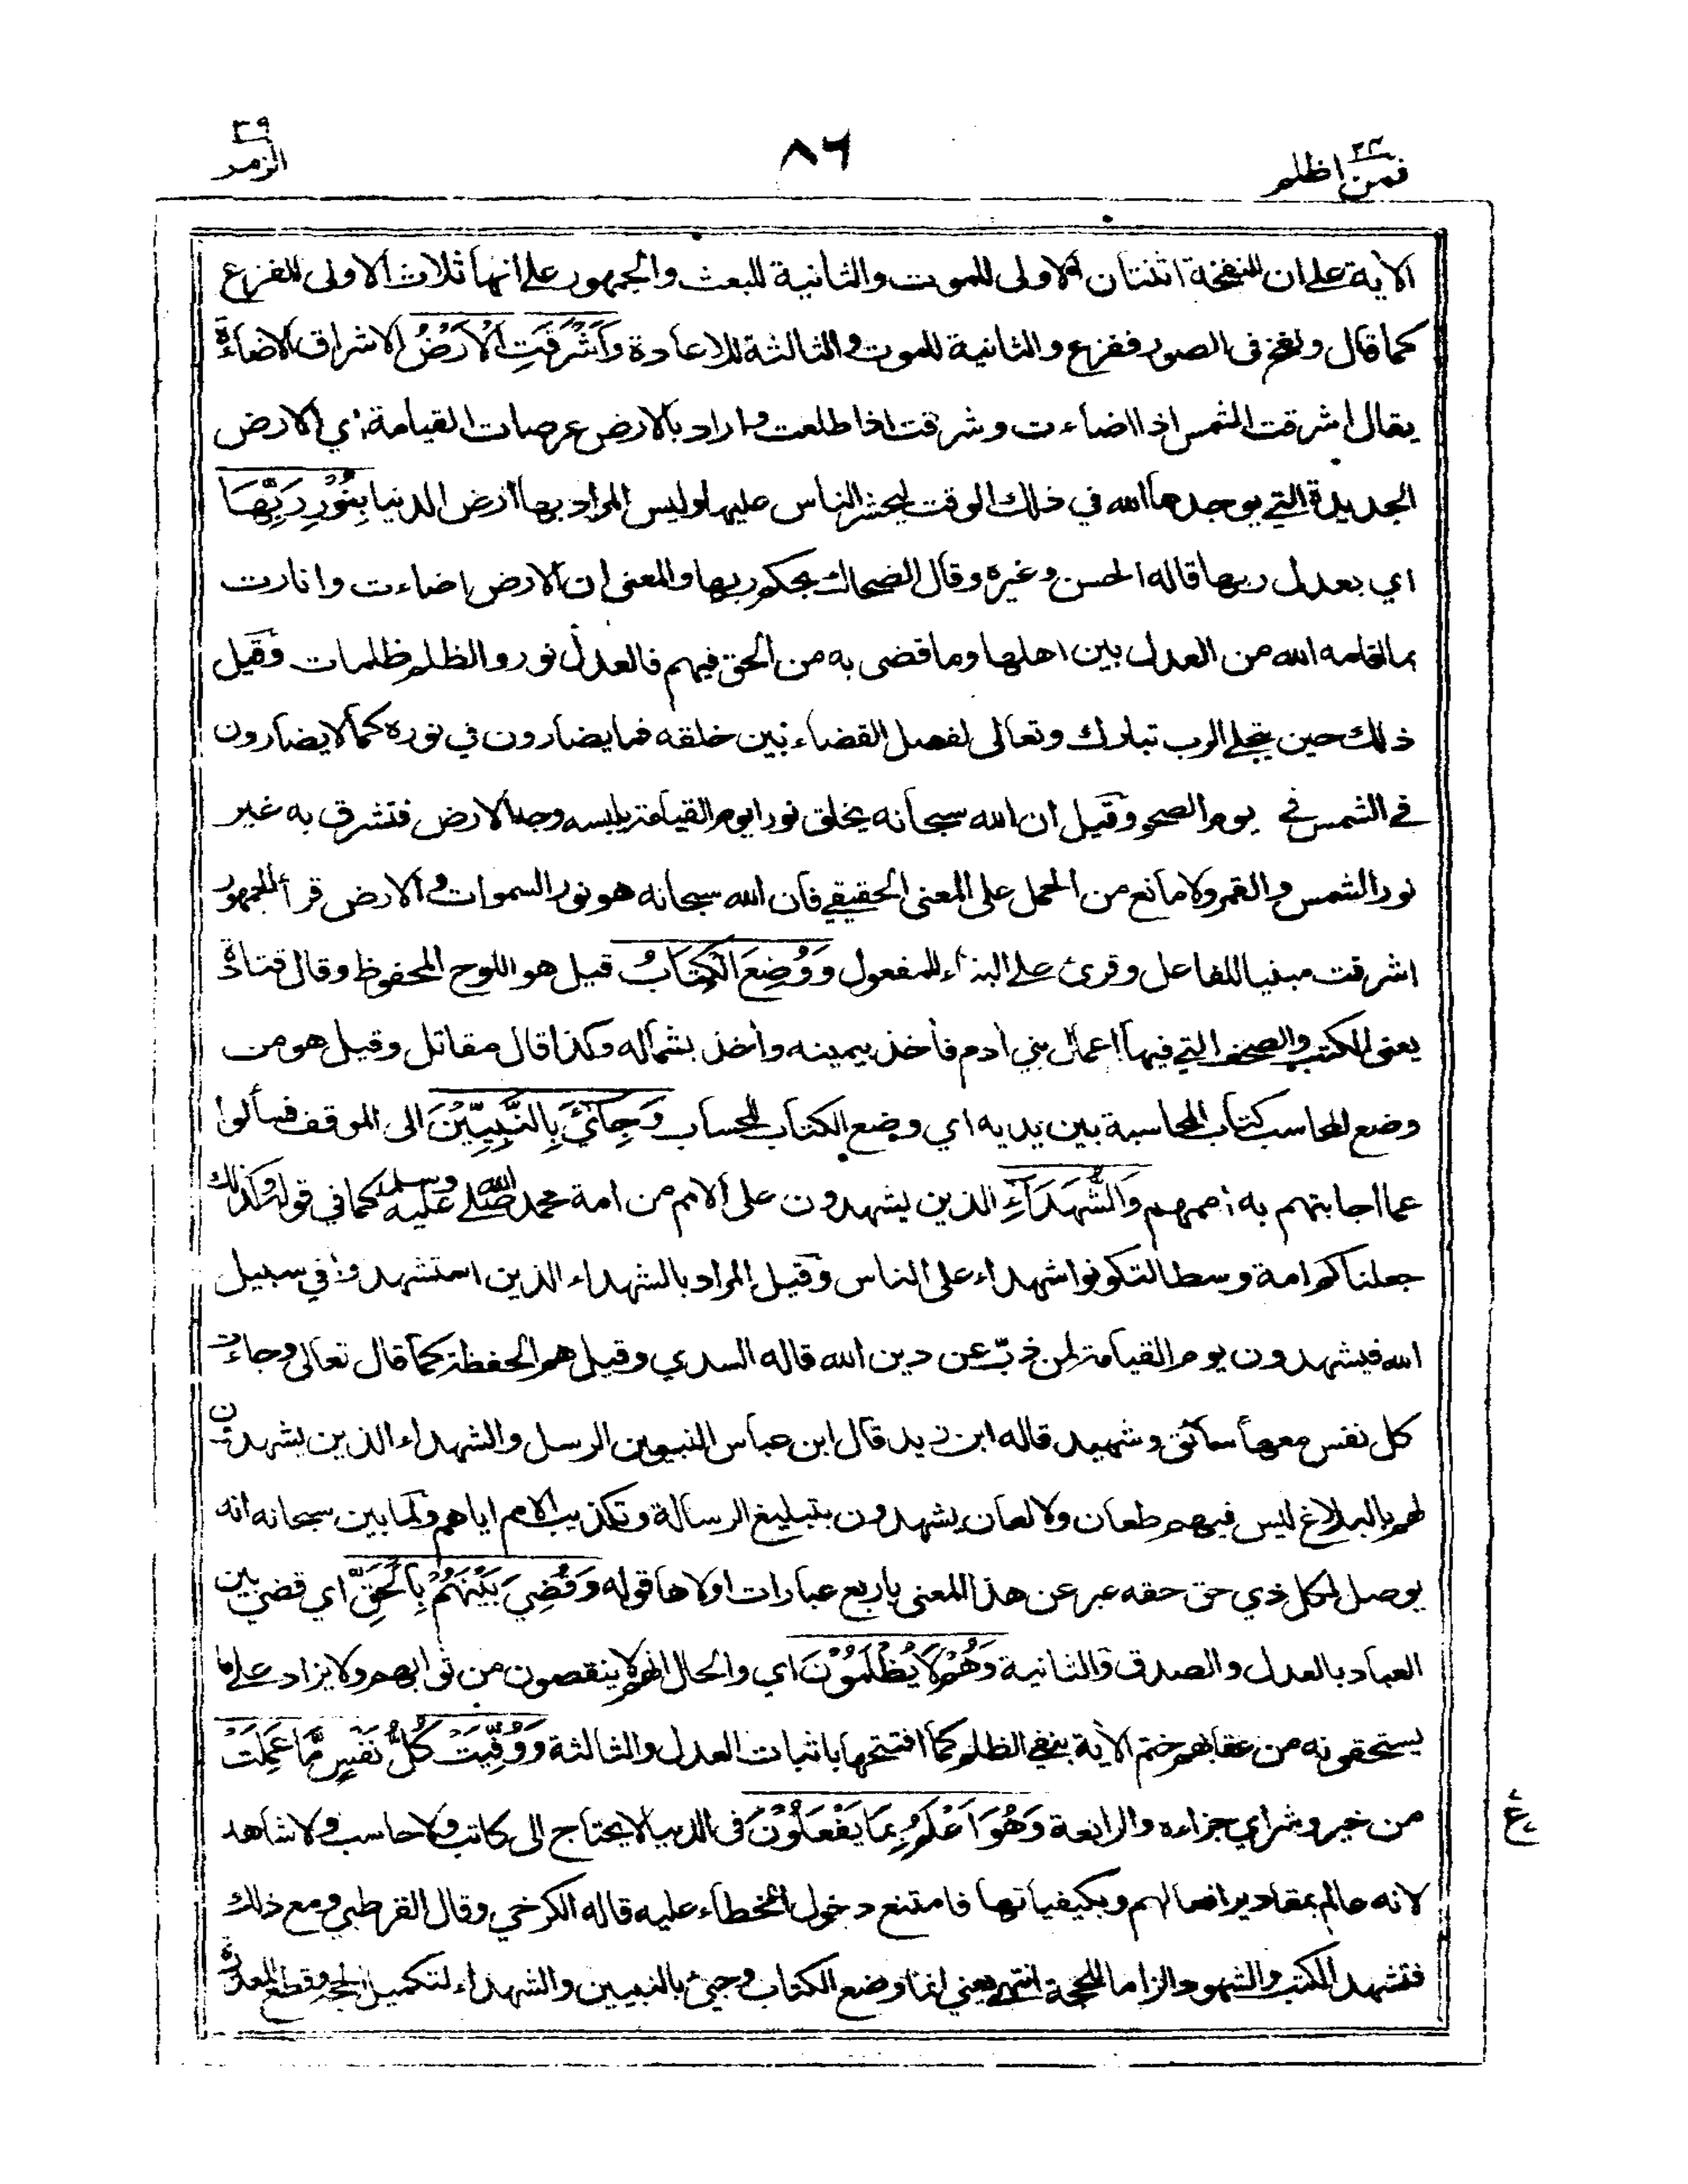 فمن اظلم ٢٤
٨٦
الزمر ٣٩
الآية على ان النفخة اثنتان الاولى للموت والثانية للبعث والجمهور على انها ثلاث الاولى للفزع
كما قال ونفخ فى الصور ففزع والثانية للموت والثالثة للاعادة وَأَشْرَقَتِ الْأَرْضُ الاشراق الاضاءة
يقال اشرقت الشمس اذا اضاءت وشرقت اذا طلعت واراد بالارض عرصات القيامة اي الارض
الجديدة التي يوجدها الله في ذلك الوقت ليحشر الناس عليها وليس المراد بها ارض الدنيا بِنُوْرِ رَبِّهَا
اي بعدل ربها قاله الحسن وغيره وقال الضحاك بحكم ربها والمعنى ان الارض اضاءت وانارت
بما اقامه الله من العدل بين اهلها وما قضى به من الحق فيهم فالعدل نور والظلم ظلمات وقيل
ذلك حين يتجلى الرب تبارك وتعالى لفصل القضاء بين خلقه فما يضارون في نوره كما لا يضارون
في الشمس في يوم الصحو وقيل ان الله سبحانه يخلق نورا يوم القيامة يلبسه وجه الارض فتشرق به غير
نور الشمس والقمر ولا مانع من الحمل على المعنى الحقيقي فان الله سبحانه هو نور السموات والارض قرأ الجمهور
اشرقت مبنيا للفاعل وقرئ على البناء للمفعول وَوُضِعَ الْكِتَابُ قيل هو اللوح المحفوظ وقال قتادة
يعنى الكتب والصحف التي فيها اعمال بني ادم فأخذ بيمينه وأخذ بشماله وكذا قال مقاتل وقيل هو من
وضع المحاسب كتاب المحاسبة بين يديه اي وضع الكتاب للحساب وَجِائَئَ بِالنَّبِيِّيْنَ الى الموقف فسألوا
عما اجابتهم به اممهم وَالشُّهَدَآءِ الذين يشهدون على الامم من امة محمد صلى الله عليه وسلم كما في قوله وكذلك
جعلناكم امة وسطا لتكونوا شهداء على الناس وقيل المراد بالشهداء الذين استشهدوا في سبيل
الله فيشهدون يوم القيامة لمن ذبّ عن دين الله قاله السدي وقيل هم الحفظة كما قال تعالى وجاءت
كل نفس معها سائق وشهيد قاله ابن زيد قال ابن عباس النبيين الرسل والشهداء الذين يشهدون
لهم بالبلاغ ليس فيهم طعان ولا لعان يشهدون بتبليغ الرسالة وتكذيب الامم اياهم ولما بين سبحانه انه
يوصل لكل ذي حق حقه عبر عن هذا المعنى باربع عبارات اولاها قوله وَقُضِيَ بَيْنَهُمْ بِالْحَقِّ اي قضي بين
العباد بالعدل والصدق والثانية وَهُمْ لَا يُظْلَمُوْنَ اي والحال انهم لا ينقصون من ثوابهم ولا يزاد على ما
يستحقونه من عقابهم ختم الآية بنفي الظلم كما افتتحها باثبات العدل والثالثة وَوُفِّيَتْ كُلُّ نَفْسٍ مَّا عَمِلَتْ
من خير وشر اي جزاءه والرابعة وَهُوَ اَعْلَمُ بِمَا يَفْعَلُوْنَ فى الدنيا لا يحتاج الى كاتب ولا حاسب ولا شاهد
لانه عالم بمقادير افعالهم وبكيفياتها فامتنع دخول الخطاء عليه قاله الكرخي وقال القرطبي ومع ذلك
فتشهد الكتب والشهود الزاما للحجة انتهى يعني انما وضع الكتاب وجيئ بالنبيين والشهداء لتكميل الحجة وقطع المعذرة
ع